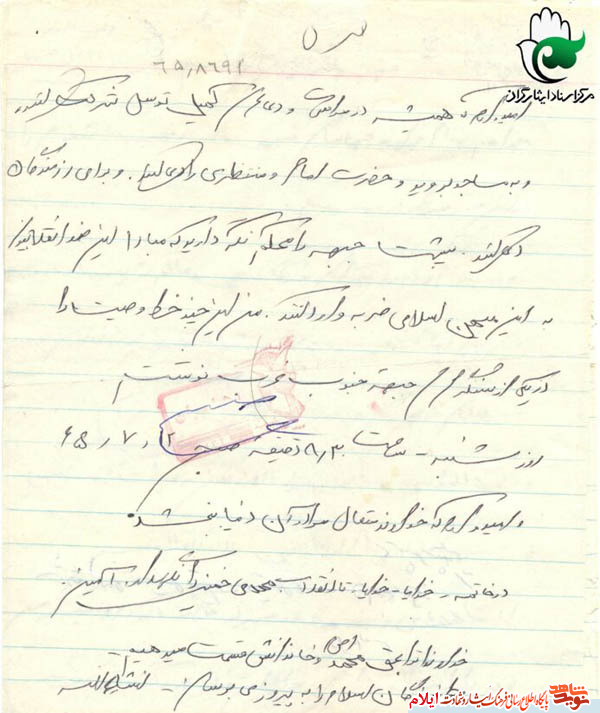 مرکز اسناد ایثارگران
امیدوارم که همیشه در مراسمات و دعای کمیل توسل شرکت کنید
و به مساجد بروید و حضرت امام و منتظری را دعا کنید. و برای رزمندگان
دعا کنید. پشت جبهه را محکم نگه دارید که مبادا این ضد انقلابیون
به این میهن اسلامی ضربه وارد کنند. من این چند خط وصیت را
در یکی از سنگرهای جبهه جنوب غرب نوشتم
روز شنبه - ساعت ۸/۳۰ دقیقه صبح ۱۲ / ۷ / ۶۵
و امیدوارم که خداوند متعال مرا در آن دنیا ببخشد.
در خاتمه - خدایا - خدایا - تا انقلاب مهدی خمینی را نگهدار. آمین.
خداوندا بحق محمد (ص) و خاندانش قسمت میدهیم
رزمندگان اسلام را به پیروزی برسان - انشاءالله
نوید شاهد پایگاه اطلاع رسانی فرهنگ ایثار و شهادت ایلام